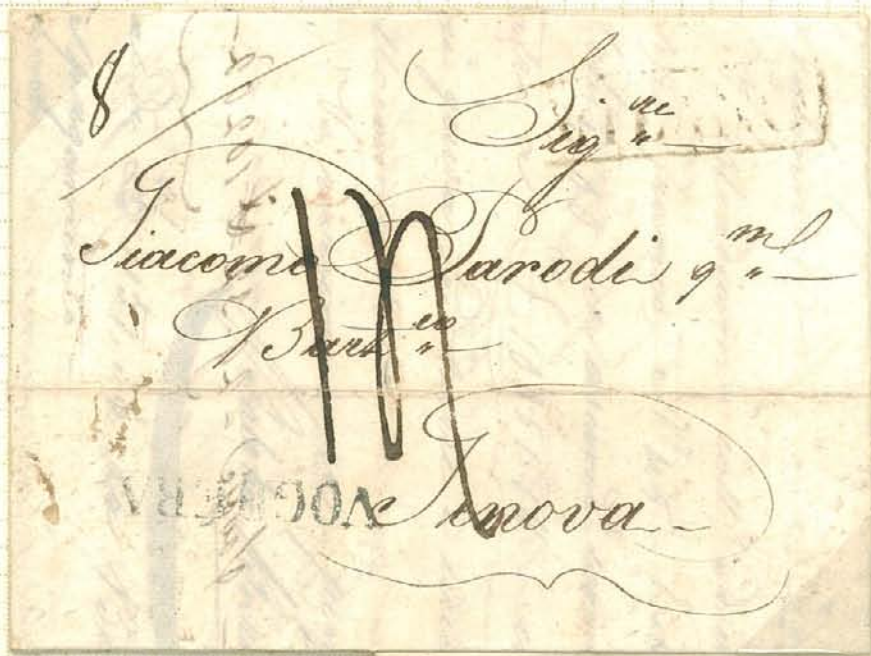 8
Sig re
Giacomo Parodi q m
Bart eo
VOGHERA
Genova